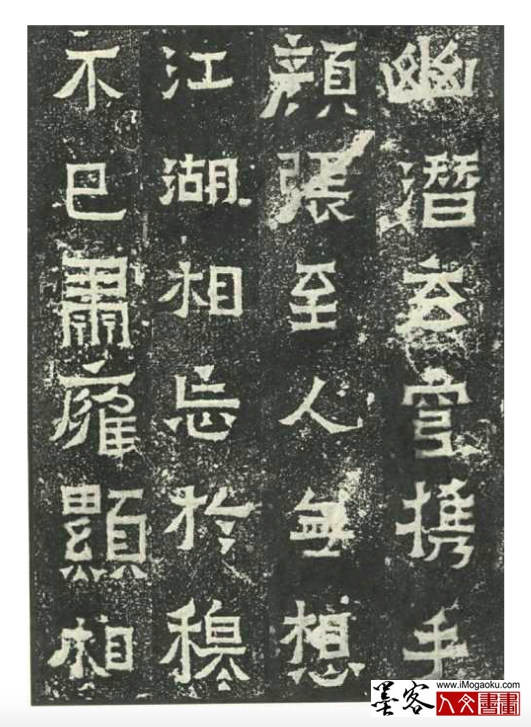 幽潛玄携手
顏張至人無想
江湖相忘於穆
不已肅廱顯相
墨客
www.iMogaoku.com
人文書畫